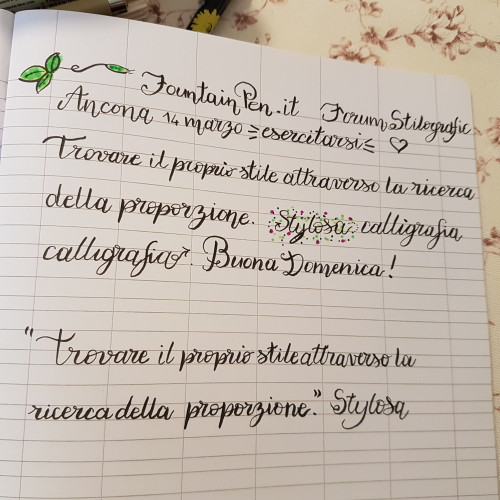 FountainPen.it Forum Stilografic
Ancona 14 marzo =esercitarsi= ♡
Trovare il proprio stile attraverso la ricerca
della proporzione. Stylosa calligrafia
calligrafica. Buona Domenica!
"Trovare il proprio stile attraverso la
ricerca della proporzione." Stylosa